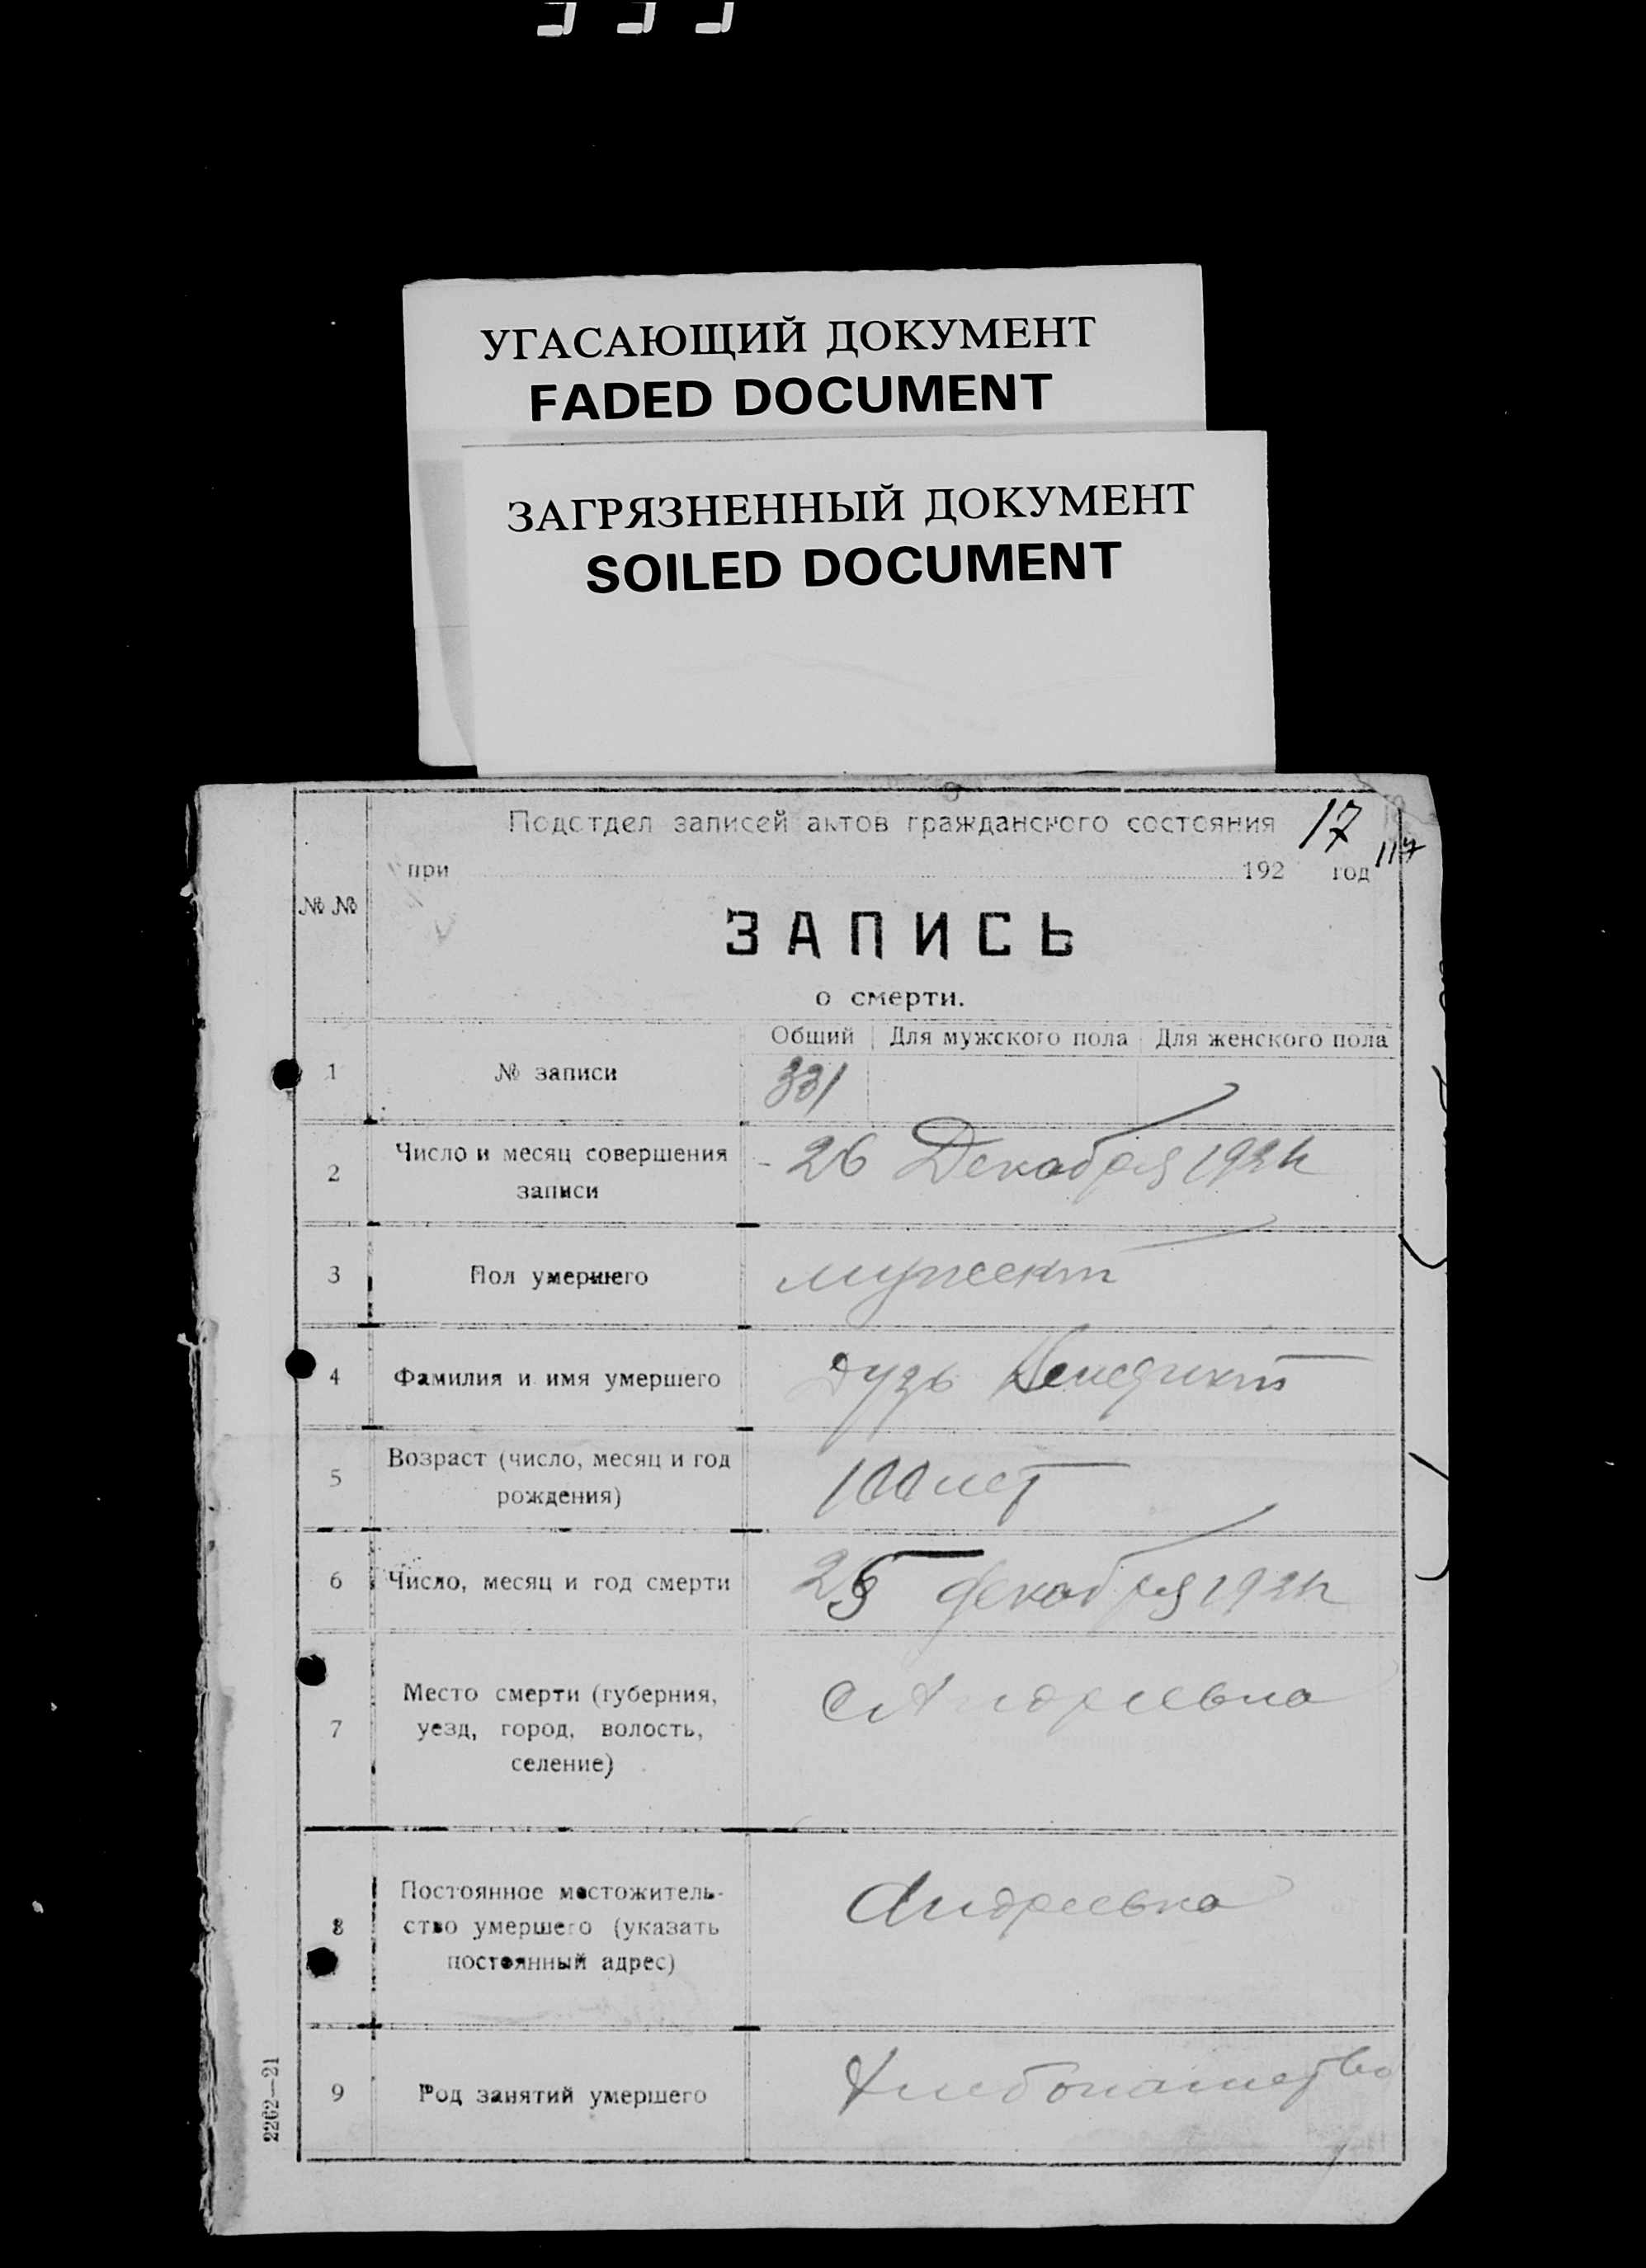 УГАСАЮЩИЙ ДОКУМЕНТ
FADED DOCUMENT
ЗАГРЯЗНЕННЫЙ ДОКУМЕНТ
SOILED DOCUMENT
Подотдел записей актов гражданского состояния
17
117
при 192 год
№ №
ЗАПИСЬ
о смерти.
Общий Для мужского пола Для женского пола
1 № записи 331
2 Число и месяц совершения записи - 26 Декабря
3 Пол умершего
4 Фамилия и имя умершего Дузь Бенедикт
5 Возраст (число, месяц и год рождения) 100 лет
6 Число, месяц и год смерти декабря
7 Место смерти (губерния, уезд, город, волость, селение) с Андреевка
8 Постоянное местожительство умершего (указать постоянный адрес) Андреевка
9 Род занятий умершего Хлебопашество
2262—21